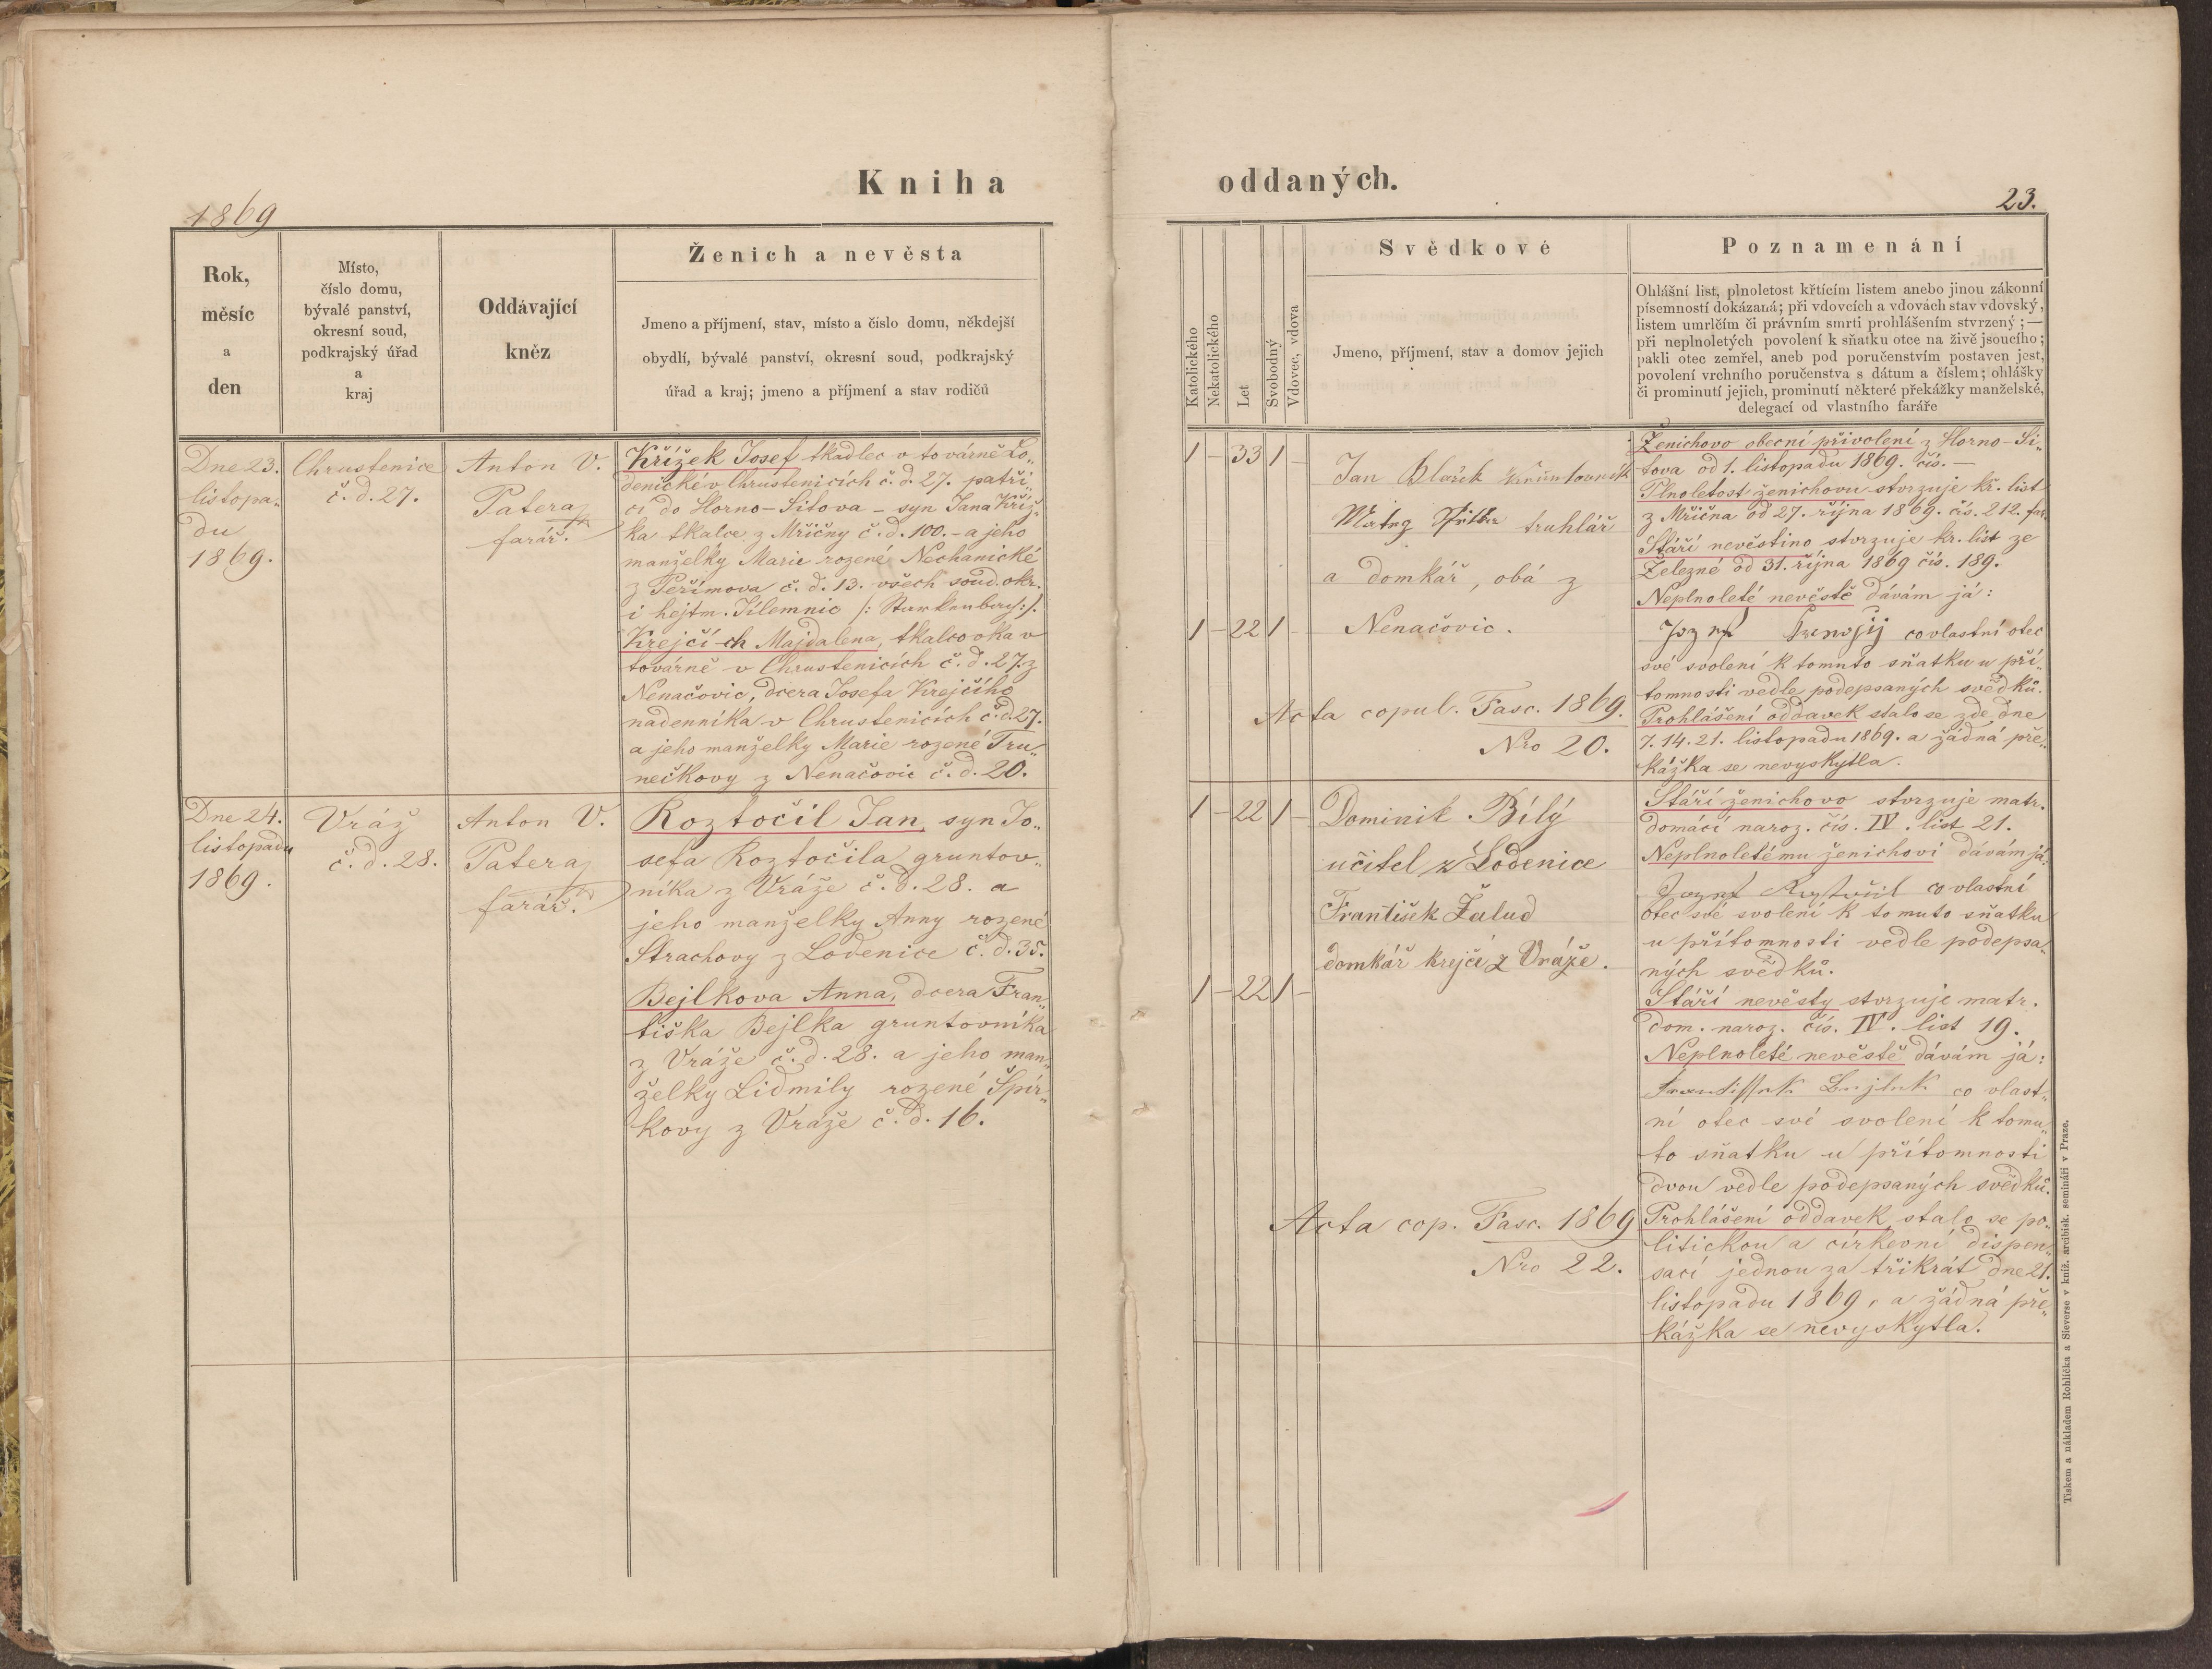 Kniha
1869
Rok,
měsíc
a
den
Místo,
číslo domu,
bývalé panství,
okresní soud,
podkrajský úřad
a
kraj
Oddávající
kněz
Ženich a nevěsta
Jmeno a příjmení, stav, místo a číslo domu, někdejší
obydlí, bývalé panství, okresní soud, podkrajský
úřad a kraj; jmeno a příjmení a stav rodičů
Dne 23.
listopa„
du
1869.
Chrustenice
č. d. 27.
Anton V.
Patera
farář.
Křížek Josef tkadlec v továrně Lo„
denické v Chrustenicích č. d. 27. patří„
cí do Horno-Sitova – syn Jana Kříž„
ka tkalce z Mřičny č. d. 100. – a jeho
manželky Marie rozené Nechanické
z Peřimova č. d. 13. všech soud. okr.
i hejtm. Jilemnic /: Starkenbach :/.
Krejčí-ch Majdalena, tkalcovka v
továrně v Chrustenicích č. d. 27. z
Nenačovic, dcera Josefa Krejčího
nadenníka v Chrustenicích č. d. 27.
a jeho manželky Marie rozené Tru„
nečkovy z Nenačovic č. d. 20.
Dne 24.
listopadu
1869.
Vráž
č. d. 28.
Anton V.
Patera
farář.
Roztočil Jan, syn Jo„
sefa Roztočila gruntov„
níka z Vráže č. d. 28. a
jeho manželky Anny rozené
Strachovy z Lodenice č. d. 35.
Bejlkova Anna, dcera Fran„
tiška Bejlka gruntovníka
z Vráže č. d. 28. a jeho man„
želky Lidmily rozené Špír„
kovy z Vráže č. d. 16.
oddaných.
23.
Katolického
Nekatolického
Let
Svobodný
Vdovec, vdova
Svědkové
Jmeno, příjmení, stav a domov jejich
Poznamenání
Ohlášní list, plnoletost křtícím listem anebo jinou zákonní
písemností dokázaná; při vdovcích a vdovách stav vdovský,
listem umrlčím či právním smrti prohlášením stvrzený; —
při neplnoletých povolení k sňatku otce na živě jsoucího;
pakli otec zemřel, aneb pod poručenstvím postaven jest,
povolení vrchního poručenstva s dátum a číslem; ohlášky
či prominutí jejich, prominutí některé překážky manželské,
delegací od vlastního faráře
1 – 33 1 –
Jan
truhlář
a domkář, obá z
1 – 22 1 –
Nenačovic.
Acta copul. Fasc. 1869.
Nro 20.
Ženichovo obecní přivolení z Horno-Si„
tova od 1. listopadu 1869. čís. –
Plnoletost ženichovu stvrzuje kř. list
z Mřična od 27. října 1869. čís. 212.
Stáří nevěstino stvrzuje kř. list ze
Železné od 31. října 1869 čís. 189.
Neplnoleté nevěstě dávám já:
co vlastní otec
své svolení k tomuto sňatku u pří„
tomnosti vedle podepsaných svědků.
Prohlášení oddavek stalo se zde dne
7. 14. 21. listopadu 1869. a žádná pře„
kážka se nevyskytla.
1 – 22 1 –
Dominik Bílý
učitel z Lodenice
František Žalud
domkář krejčí z Vráže.
1 – 22 1 –
Acta cop. Fasc. 1869
Nro 22.
Stáří ženichovo stvrzuje matr.
domácí naroz. čís. IV. list 21.
Neplnoletému ženichovi dávám já:
co vlastní
otec své svolení k tomuto sňatku
u přítomnosti vedle podepsa„
ných svědků.
Stáří nevěsty stvrzuje matr.
dom. naroz. čís. IV. list 19.
Neplnoleté nevěstě dávám já:
co vlast„
ní otec své svolení k tomu„
to sňatku u přítomnosti
dvou vedle podepsaných svědků.
Prohlášení oddavek stalo se po„
litickou a církevní dispen„
sací jednou za třikrát dne 21.
listopadu 1869, a žádná pře„
kážka se nevyskytla.
Tiskem a nákladem Rohlíčka a Sieverse v kníž. arcibisk. semináři v Praze.